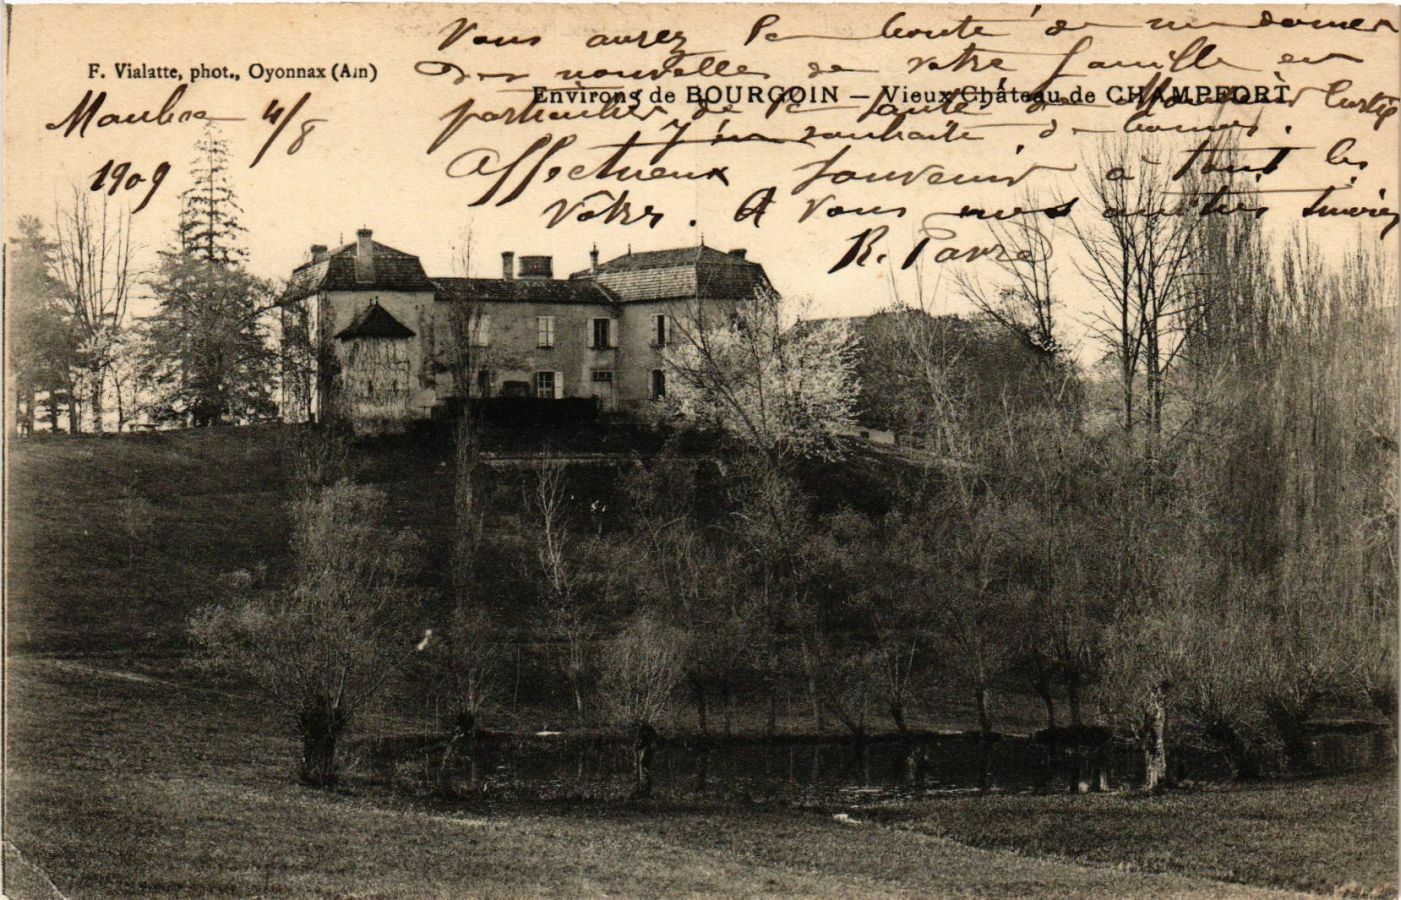 Vous aurez la bonté de me donner
des nouvelles de votre famille en
F. Vialatte, phot., Oyonnax (Ain)
Environs de BOURGOIN — Vieux Château de CHAMPFORT
particulier de la santé de Monsieur
J'en souhaite de bonnes.
4/8
1909
Affectueux souvenir à tous les
vôtres. A vous mes amitiés
R. Favre